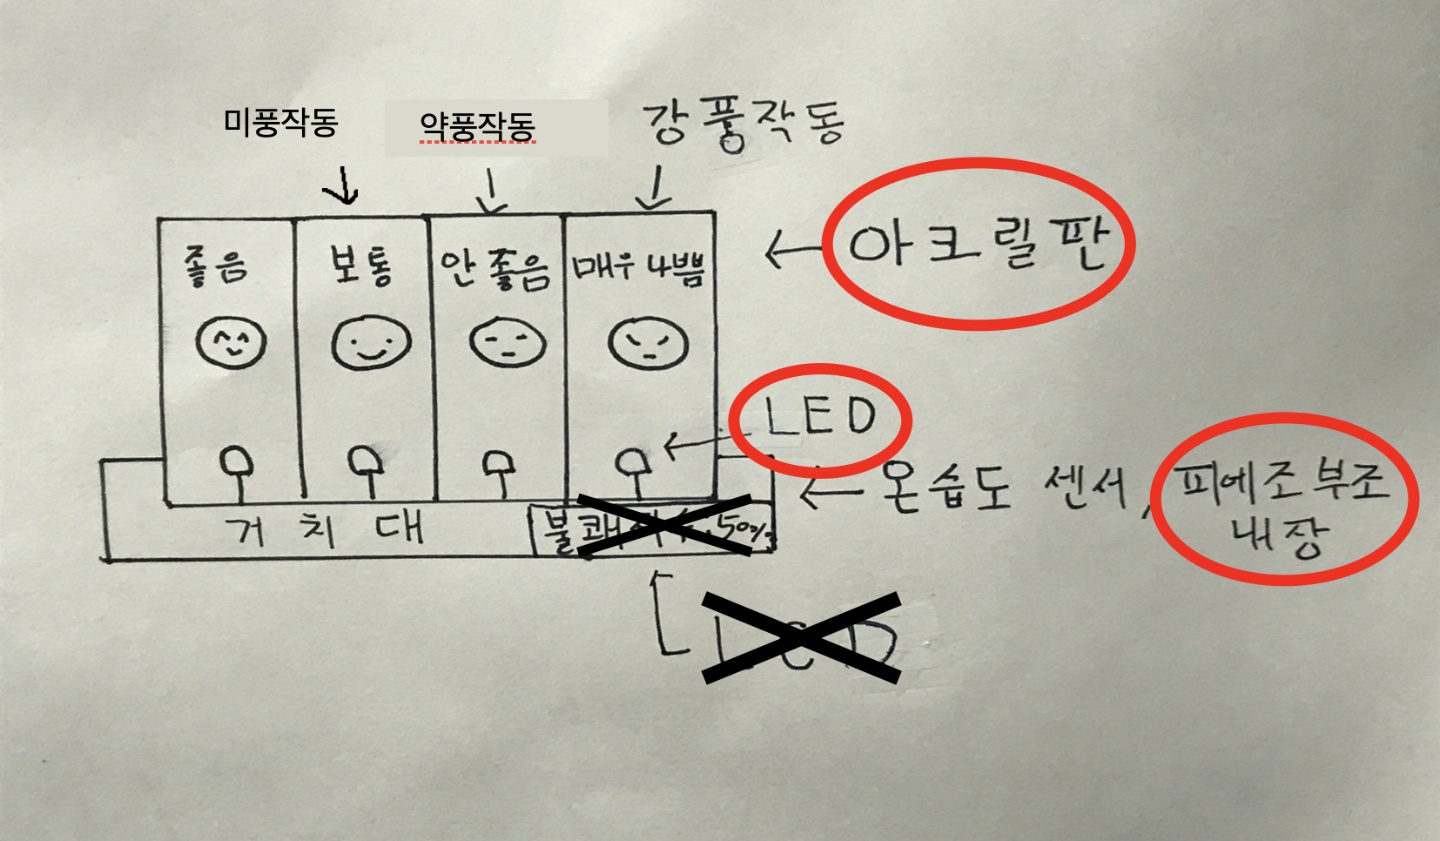 미풍작동 약풍작동 강풍작동
좋음 보통 안좋음 매우 나쁨
아크릴판
LED
온습도 센서, 피에조부조
내장
거치대
불쾌 50%
LCD